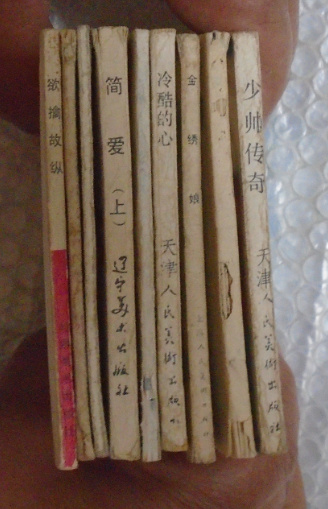 欲擒故纵
简爱（上）
辽宁美术出版社
冷酷的心
天津人民美術出版社
金绣娘
少帅传奇
天津人民美術出版社